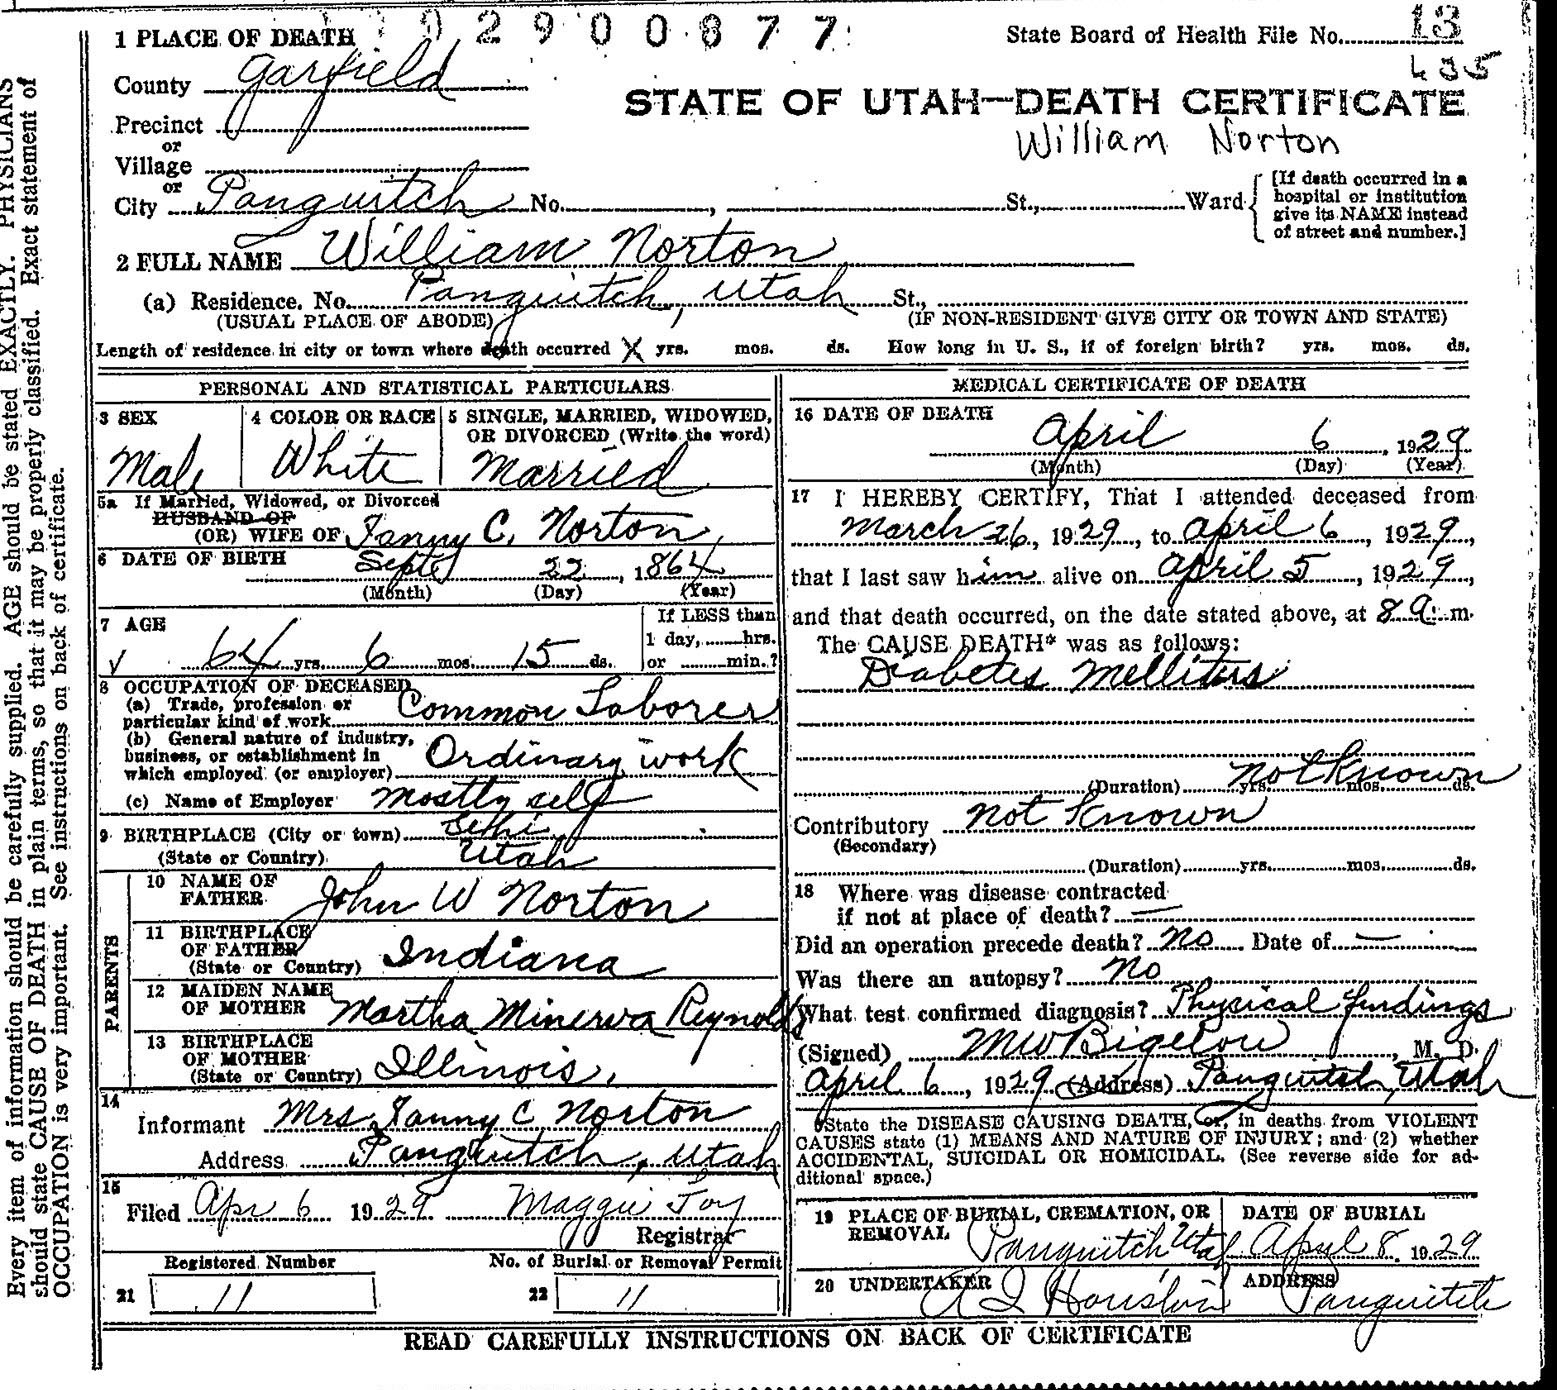 2900877
1 PLACE OF DEATH
State Board of Health File No. 13
435
County Garfield
STATE OF UTAH—DEATH CERTIFICATE
Precinct
William Norton
or
Village
or
City Panguitch No. , St., Ward
[If death occurred in a
hospital or institution
give its NAME instead
of street and number.]
2 FULL NAME William Norton
(a) Residence. No. Panguitch, Utah St.,
(USUAL PLACE OF ABODE) (IF NON-RESIDENT GIVE CITY OR TOWN AND STATE)
Length of residence in city or town where death occurred X yrs. mos. ds. How long in U. S., if of foreign birth? yrs. mos. ds.
PERSONAL AND STATISTICAL PARTICULARS
3 SEX
Male
4 COLOR OR RACE
White
5 SINGLE, MARRIED, WIDOWED,
OR DIVORCED (Write the word)
Married
5a If Married, Widowed, or Divorced
HUSBAND OF
(OR) WIFE OF Fanny C. Norton
6 DATE OF BIRTH Septe 22, 1864
(Month) (Day) (Year)
7 AGE
64 yrs. 6 mos. 15 ds.
If LESS than
1 day, hrs.
or min.?
8 OCCUPATION OF DECEASED
(a) Trade, profession or
particular kind of work Common Laborer
(b) General nature of industry,
business, or establishment in
which employed (or employer) Ordinary work
(c) Name of Employer Mostly self
9 BIRTHPLACE (City or town) Lehi,
(State or Country) Utah
PARENTS
10 NAME OF
FATHER John W Norton
11 BIRTHPLACE
OF FATHER
(State or Country) Indiana
12 MAIDEN NAME
OF MOTHER Martha Minerva Reynolds
13 BIRTHPLACE
OF MOTHER
(State or Country) Illinois,
14
Informant Mrs. Fanny C Norton
Address Panguitch, Utah
15
Filed Apr 6 1929 Maggie Foy
Registrar
Registered Number No. of Burial or Removal Permit
21 11 22 11
MEDICAL CERTIFICATE OF DEATH
16 DATE OF DEATH
April 6, 1929
(Month) (Day) (Year)
17 I HEREBY CERTIFY, That I attended deceased from
March 26, 1929, to April 6, 1929,
that I last saw him alive on April 5, 1929,
and that death occurred, on the date stated above, at 8 a. m.
The CAUSE DEATH* was as follows:
Diabetes Mellitus
(Duration) yrs. mos. ds. not known
Contributory not known
(Secondary)
(Duration) yrs. mos. ds.
18 Where was disease contracted
if not at place of death? —
Did an operation precede death? No Date of —
Was there an autopsy? No
What test confirmed diagnosis? Physical findings
(Signed) MW Bigelow, M. D.
April 6, 1929 (Address) Panguitch, Utah
*State the DISEASE CAUSING DEATH, or, in deaths from VIOLENT
CAUSES state (1) MEANS AND NATURE OF INJURY; and (2) whether
ACCIDENTAL, SUICIDAL OR HOMICIDAL. (See reverse side for ad-
ditional space.)
19 PLACE OF BURIAL, CREMATION, OR
REMOVAL Panguitch Utah
DATE OF BURIAL
April 8 1929
20 UNDERTAKER
ADDRESS
Panguitch
READ CAREFULLY INSTRUCTIONS ON BACK OF CERTIFICATE
Every item of information should be carefully supplied. AGE should be stated EXACTLY. PHYSICIANS
should state CAUSE OF DEATH in plain terms, so that it may be properly classified. Exact statement of
OCCUPATION is very important. See instructions on back of certificate.